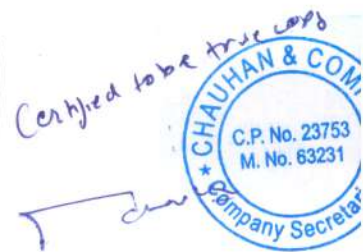 Certified to be true copy
CHAUHAN & COM
C.P. No. 23753
M. No. 63231
Company Secretari